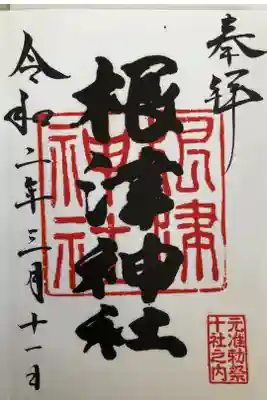 奉拝
根津神社
根津神社
元准勅祭
十社之内
令和二年三月十一日